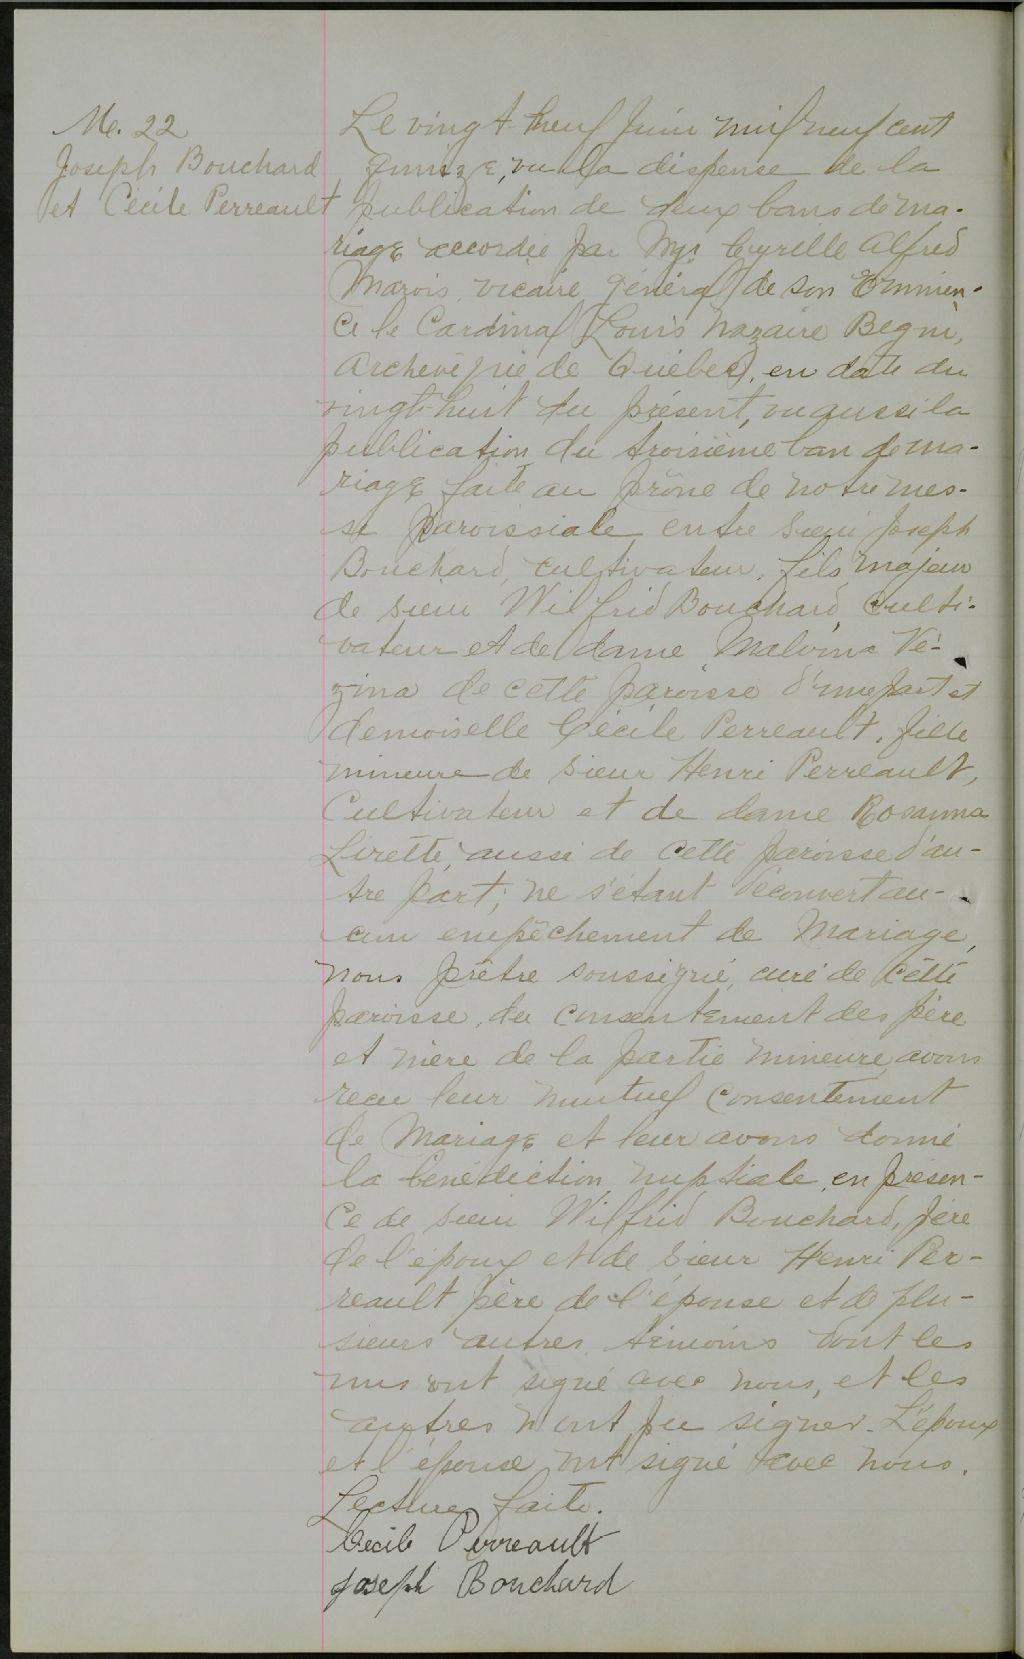 M. 22
Joseph Bouchard
et Cécile Perreault
Le vingt-neuf Juin mil neuf cent
quinze, vu la dispense de la
publication de deux bans de ma-
riage accordée par Mgr Cyrille Alfred
Marois, vicaire général de son Eminen-
ce le Cardinal Louis Nazaire Begin,
Archevêque de Québec, en date du
vingt-huit du présent, vu aussi la
publication du troisième ban de ma-
riage faite au prône de notre mes-
se paroissiale entre sieur Joseph
Bouchard, cultivateur, fils majeur
de sieur Wilfrid Bouchard, culti-
vateur et de dame Malvina Vé-
zina de cette paroisse d'une part et
demoiselle Cécile Perreault, fille
mineure de sieur Henri Perreault,
Cultivateur et de dame Rosanna
Lirette, aussi de cette paroisse d'au-
tre part; ne s'étant découvert au-
cun empêchement de Mariage,
nous prêtre soussigné, curé de cette
paroisse, du consentement des père
et mère de la partie mineure, avons
reçu leur mutuel consentement
de Mariage et leur avons donné
la bénédiction nuptiale, en présen-
ce de sieur Wilfrid Bouchard, père
de l'époux et de sieur Henri Per-
reault père de l'épouse et de plu-
sieurs autres témoins dont les
uns ont signé avec nous, et les
autres n'ont pu signer. L'époux
et l'épouse ont signé avec nous.
Lecture faite.
Cécile Perreault
Joseph Bouchard